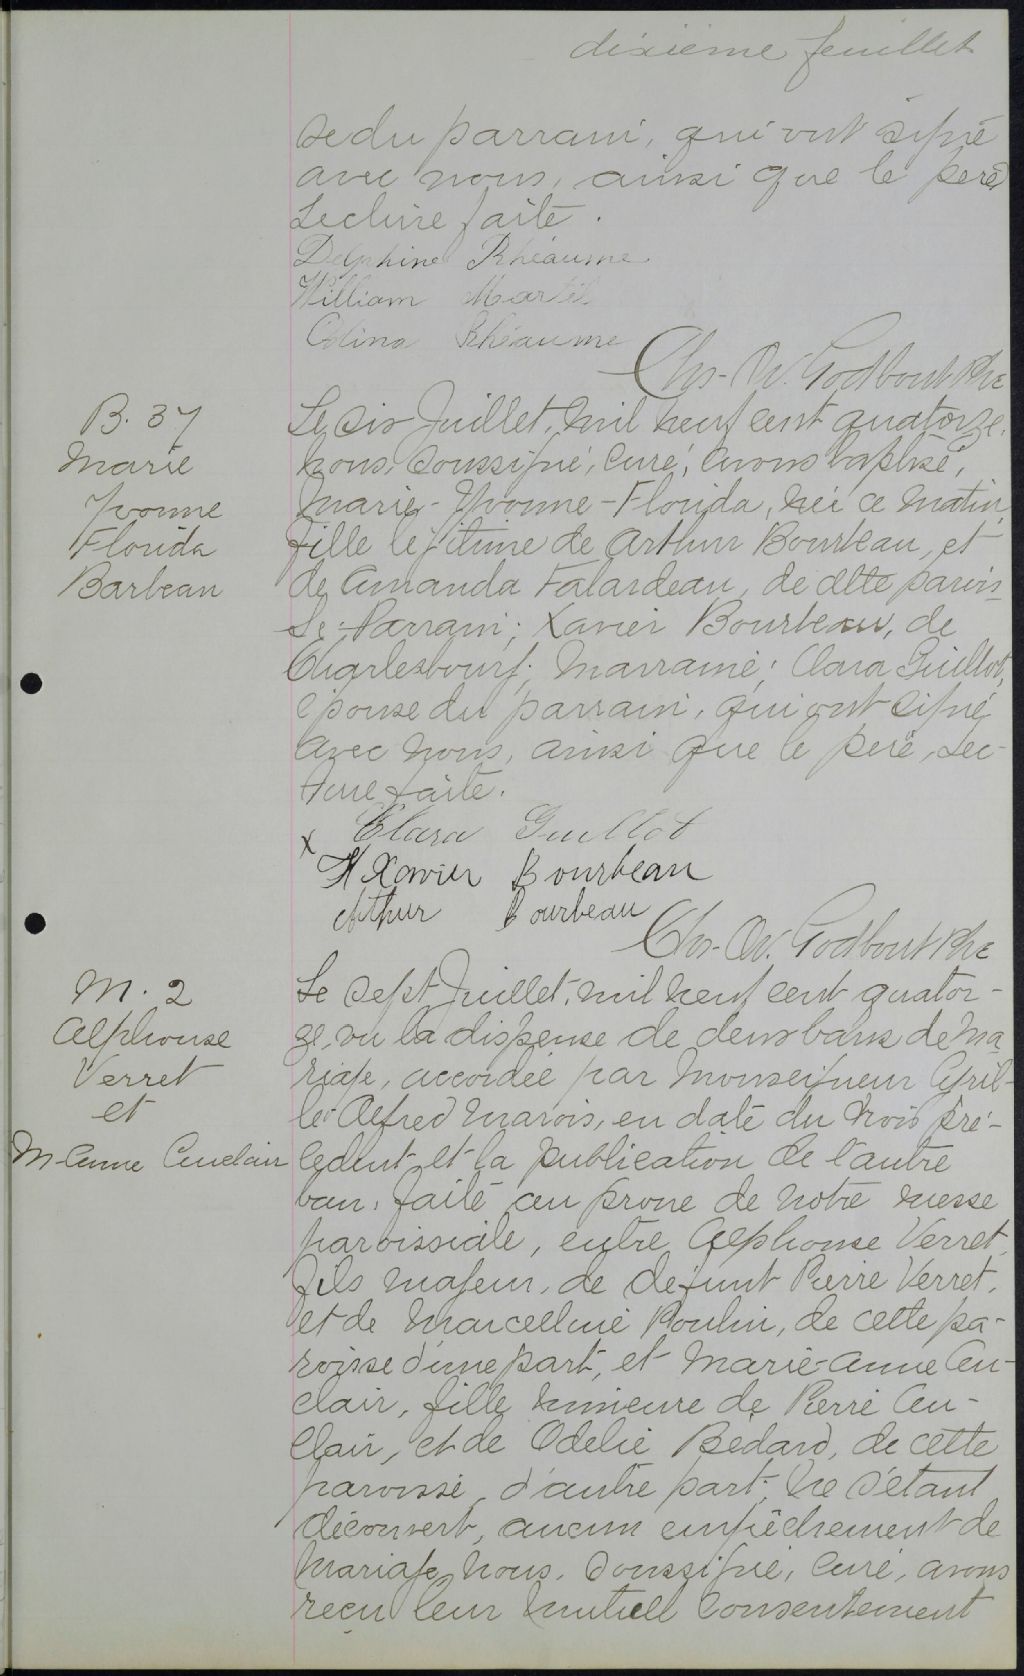 dixième feuillet
se du parrain, qui ont signé
avec nous, ainsi que le père,
Lecture faite.
Delphine Rhéaume
William Martel
Célina Rhéaume
Chs. O. Godbout Ptre
B. 37
Marie
Yvonne
Florida
Barbeau
Le six Juillet, mil neuf cent quatorze,
nous, soussigné, curé, avons baptisé,
Marie-Yvonne-Florida, née ce matin,
fille légitime de Arthur Bourbeau, et
de Amanda Falardeau, de cette parois-
se; Parrain; Xavier Bourbeau, de
Charlesbourg; Marraine; Clara Guillot,
épouse du parrain, qui ont signé
avec nous, ainsi que le père, Lec-
ture faite.
x Clara Guillot
Xavier Bourbeau
Arthur Bourbeau
Chs. O. Godbout Ptre
M. 2
Alphonse
Verret
et
M-Anne Auclair
Le sept Juillet, mil neuf cent quator-
ze, vu la dispense de deux bans de ma
riage, accordée par Monseigneur Cyril-
le Alfred Marois, en date du trois pré-
cédent et la publication de l'autre
ban, faite au prône de notre messe
paroissiale, entre Alphonse Verret,
fils majeur, de défunt Pierre Verret,
et de Marcelline Poulin, de cette pa-
roisse d'une part, et Marie-Anne Au-
clair, fille mineure de Pierre Au-
clair, et de Odélie Bédard, de cette
paroisse, d'autre part; ne s'étant
découvert, aucun empêchement de
mariage, nous, soussigné, curé, avons
reçu leur mutuel consentement